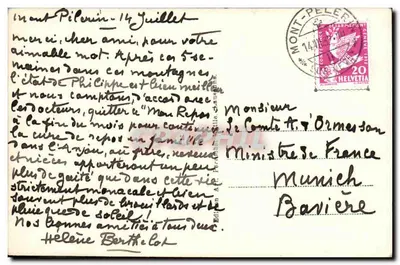 Mont Pélerin - 14 Juillet
Merci, cher ami, pour votre
aimable mot. Après ces 5 se-
maines dans ces montagnes
l'état de Philippe est bien meilleur
et nous comptons, d'accord avec
les docteurs, quitter "Mon Repos"
à la fin du mois pour continuer
la cure de repos en famille
dans l'Anjou, où frère, neveux
et nièces apporteront un peu
plus de gaité que dans cette vie
strictement monacale et
souvent plus de brouillards et de
pluie que de soleil!
Nos bonnes amitiés à tous deux.
Hélène Berthelot
MONT-PELERIN
HELVETIA
20
Monsieur
Le Comte A. d'Ormesson
Ministre de France
Munich
Bavière